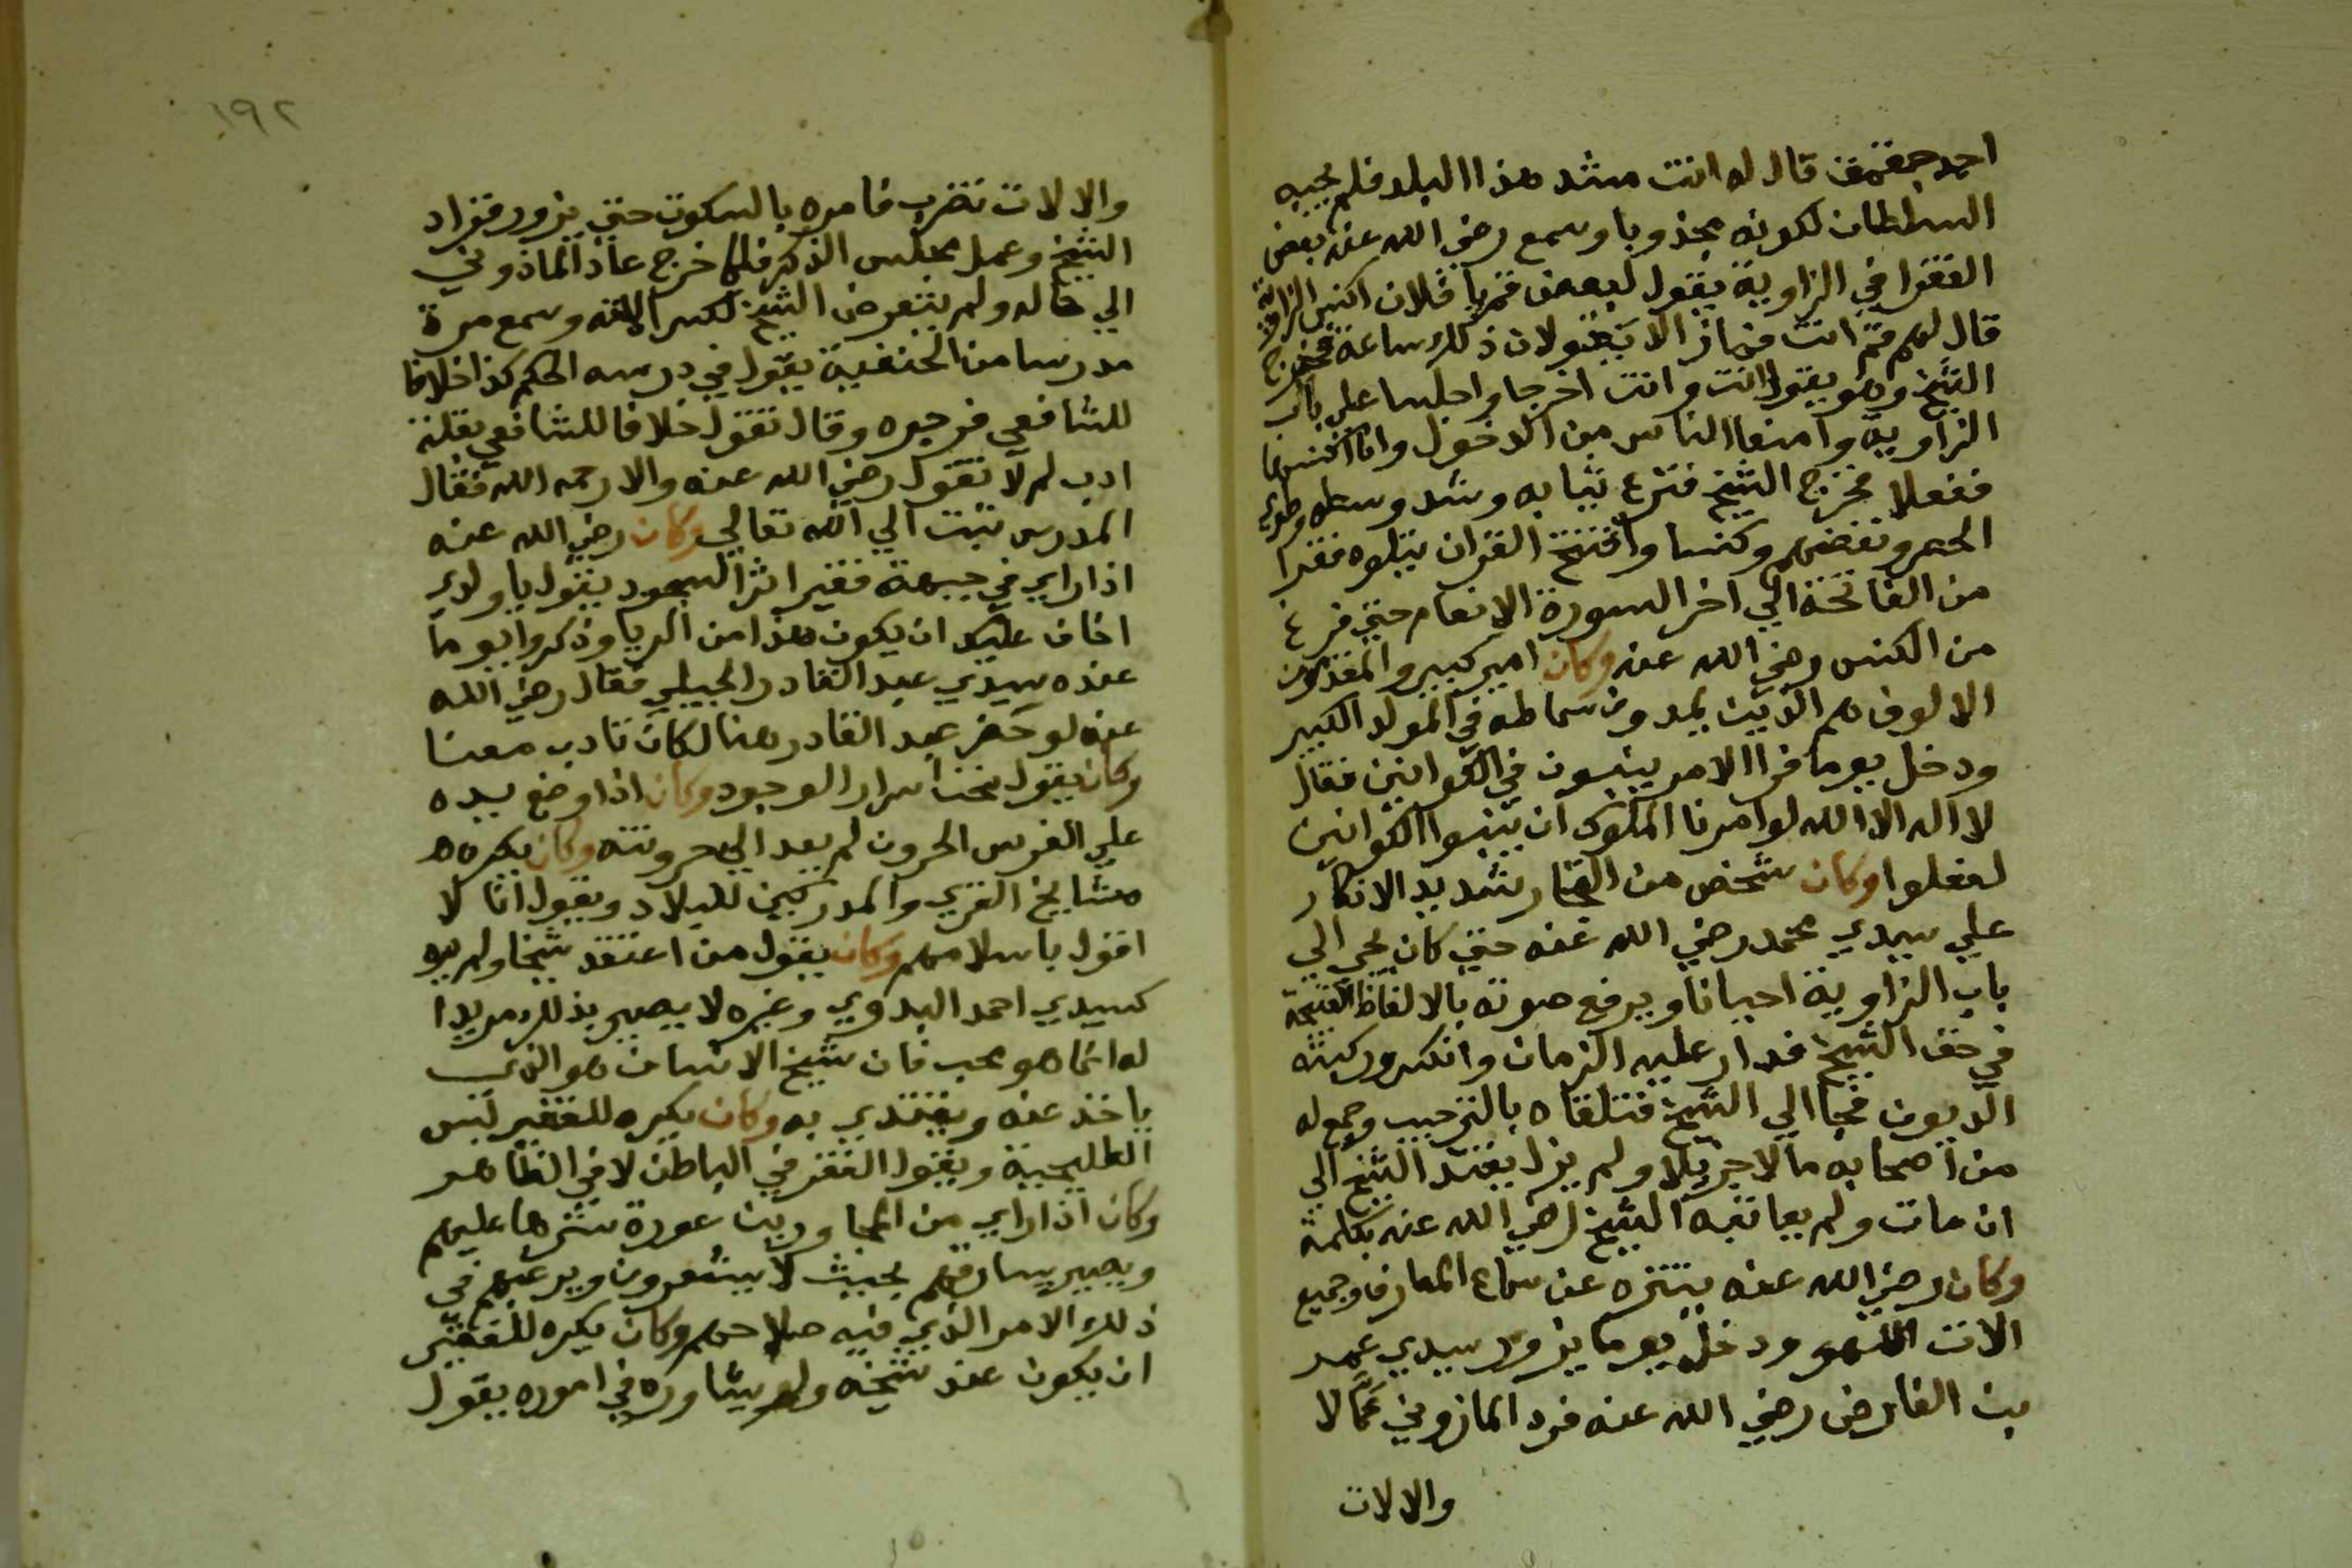 احمد جقمق قال له انت مشد هذا البلد فلم يجبه
السلطان لكونه مجذوبا وسمع رضي الله عنه بعض
الفقرا في الزاوية يقول لبعض قم يا فلان اكنس الزاوية
قال لهم قم انت فماز الا يقولان ذلك ساعة فخرج
الشيخ وهو يقول انت وانت اخرجا واجلسا علي باب
الزاوية وامنعا الناس من الدخول وانا اكنسها
ففعلا فخرج الشيخ فنزع ثيابه وشد وسطه وطوي
الحصر ونفضهم وكنسا وافتتح القران يتلوه فقرا
من الفاتحة الي اخر السورة الانعام حتي فرغ
من الكنس رضي الله عنه وكان امير كبير والمقدمون
الالوف هم الذين يمدون سماطه في المولد الكبير
ودخل يوما فرا الامر يبنبون في الكوانين فقال
لا اله الا الله لو امرنا الملوك ان يبنوا الكوانين
لفعلوا وكان شخص من التجار شديد الانكار
علي سيدي محمد رضي الله عنه حتي كان يجي الي
باب الزاوية احيانا ويرفع صوته بالالفاظ القبيحة
في حق الشيخ فدار عليه الزمان وانكسر وركبته
الديون فجا الي الشيخ فتلقاه بالترحيب وجمع له
من اصحابه مالا جزيلا ولم يزل يعتقد الشيخ الي
ان مات ولم يعاتبه الشيخ رضي الله عنه بكلمة
وكان رضي الله عنه يتنزه عن سماع المعازف وجميع
الات اللهو ودخل يوما يزور سيدي عمر
بن الفارض رضي الله عنه فرد المازوني عمالا
والالات
١٩٢
والالات تضرب فامره بالسكوت حتي يزور فزاد
الشيخ وعمل مجلس الذكر فلما خرج عاد الماذوني
الي حاله ولم يتعرض الشيخ لكسر الته وسمع مرة
مدرسا من الحنفية يقول في درسه الحكم كذا خلافا
للشافعي فزجره وقال تقول خلافا للشافعي بقلة
ادب لم لا تقول رضي الله عنه والا رحمه الله فقال
المدرس تبت الي الله تعالي وكان رضي الله عنه
اذا راي في جبهة فقير اثر السجود يقول يا ولدي
اخاف عليك ان يكون هذا من الريا وذكروا يوما
عنده سيدي عبد القادر الجيلي فقال رضي الله
عنه لو حضر عبد القادر هنا لكان تادب معنا
وكان يقول نحن اسرار الوجود وكان اذا وضع يده
علي الفرس الحرون لم يعد الي حرونته وكان يكره
مشايخ القري والمدركين للبلاد ويقول انا لا
اقول باسلامهم وكان يقول من اعتقد شيخا ولم يره
كسيدي احمد البدوي وغيره لا يصير بذلك مريدا
له انما هو محب فان شيخ الانسان هو الذي
ياخذ عنه ويقتدي به وكان يكره للفقير لبس
الطليحية ويقول الفقر في الباطن لا في الظاهر
وكان اذا راي من المجاورين عورة سترها عليهم
ويصير يسارقهم بحيث لا يشعرون ويرغبهم في
ذلك الامر الذي فيه صلاحهم وكان يكره للفقير
ان يكون عند شيخه ولم يشاوره في اموره يقول